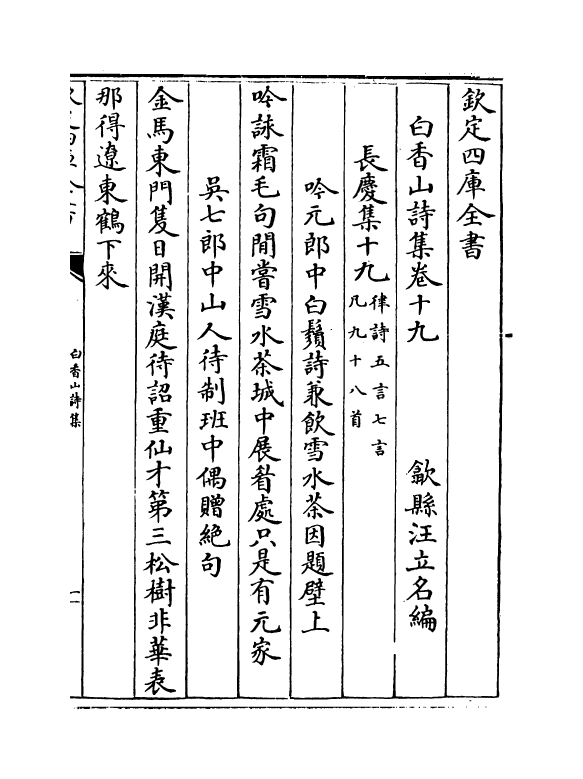 欽定四庫全書
白香山詩集卷十九　歙縣汪立名編
長慶集十九律詩五言七言
凡九十八首
吟元郎中白鬚詩兼飲雪水茶因題壁上
吟詠霜毛句閒嘗雪水茶城中展眉處只是有元家
吳七郎中山人待制班中偶贈絶句
金馬東門隻日開漢庭待詔重仙才第三松樹非華表
那得遼東鶴下來
白香山詩集
一